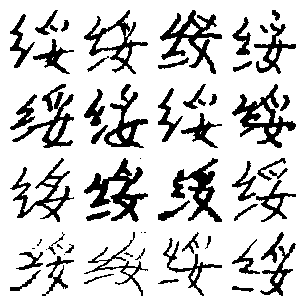 绥绥绥绥
绥绥绥绥
绥绥绥绥
绥绥绥绥